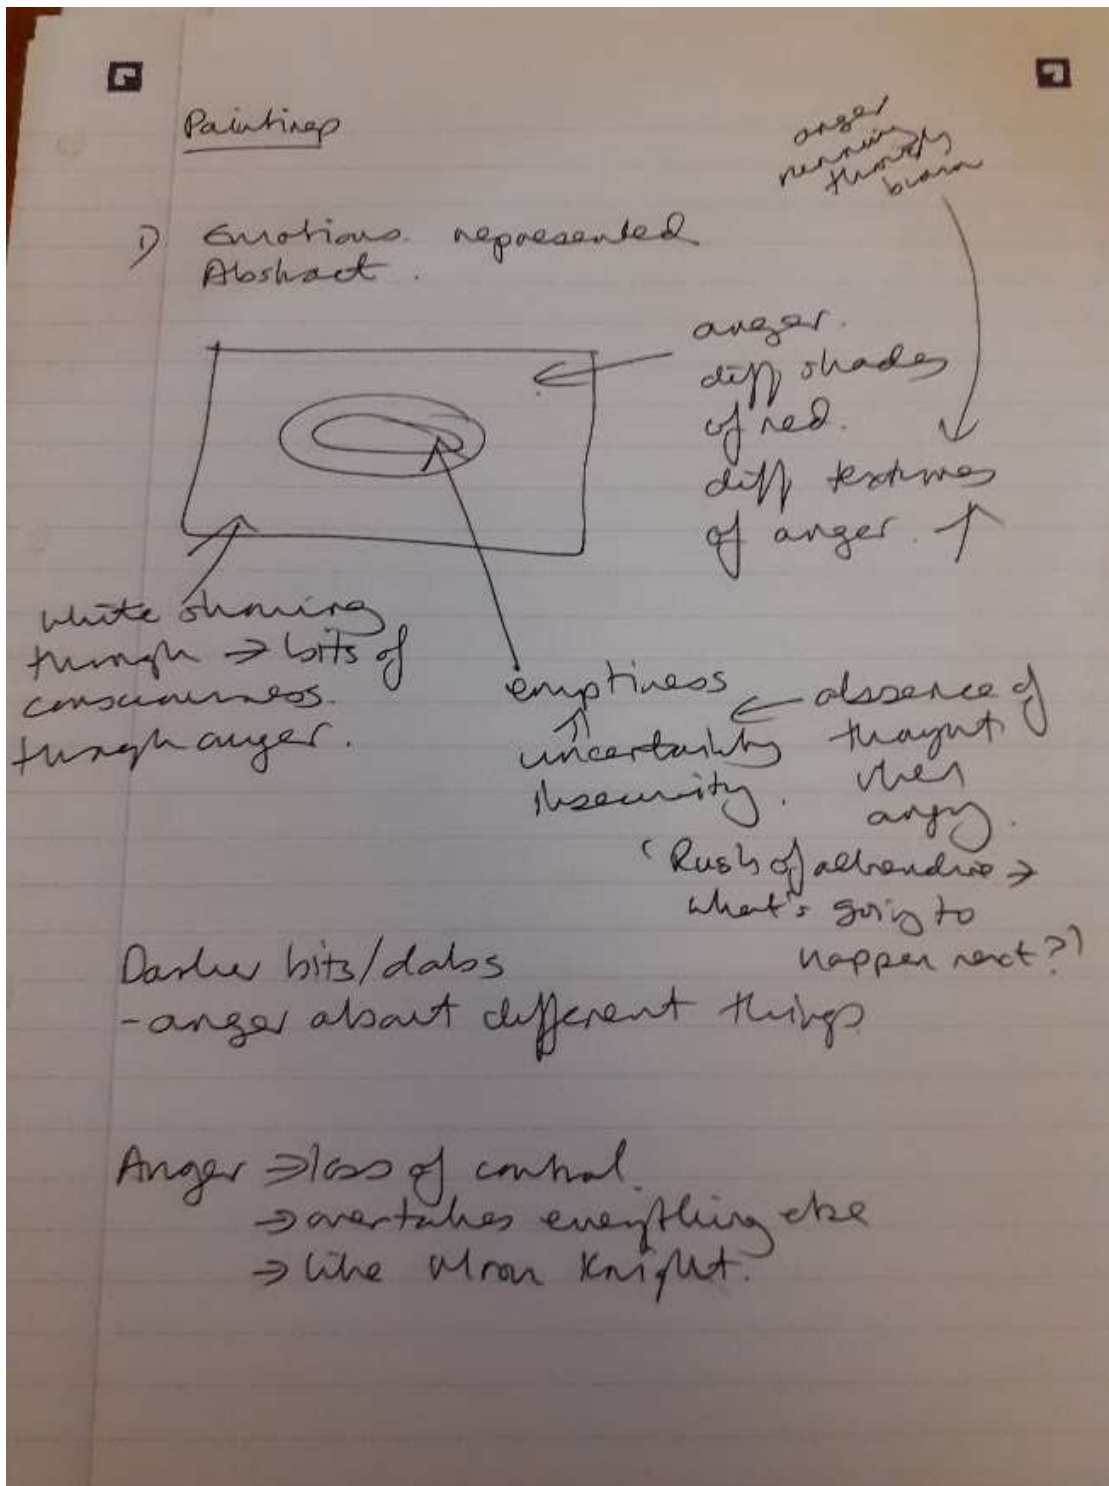 Paintings
anger
running
through
brain
1) Emotions represented
Abstract.
anger.
diff shades
of red.
diff textures
of anger.
white showing
through → bits of
consciousness
through anger.
emptiness
uncertainty
insecurity.
absence of
thought
when
angry.
'Rush of adrenaline →
what's going to
happen next?'
Darker bits/dabs
- anger about different things
Anger ⇒ loss of control.
→ overtakes everything else
→ like Moon Knight.